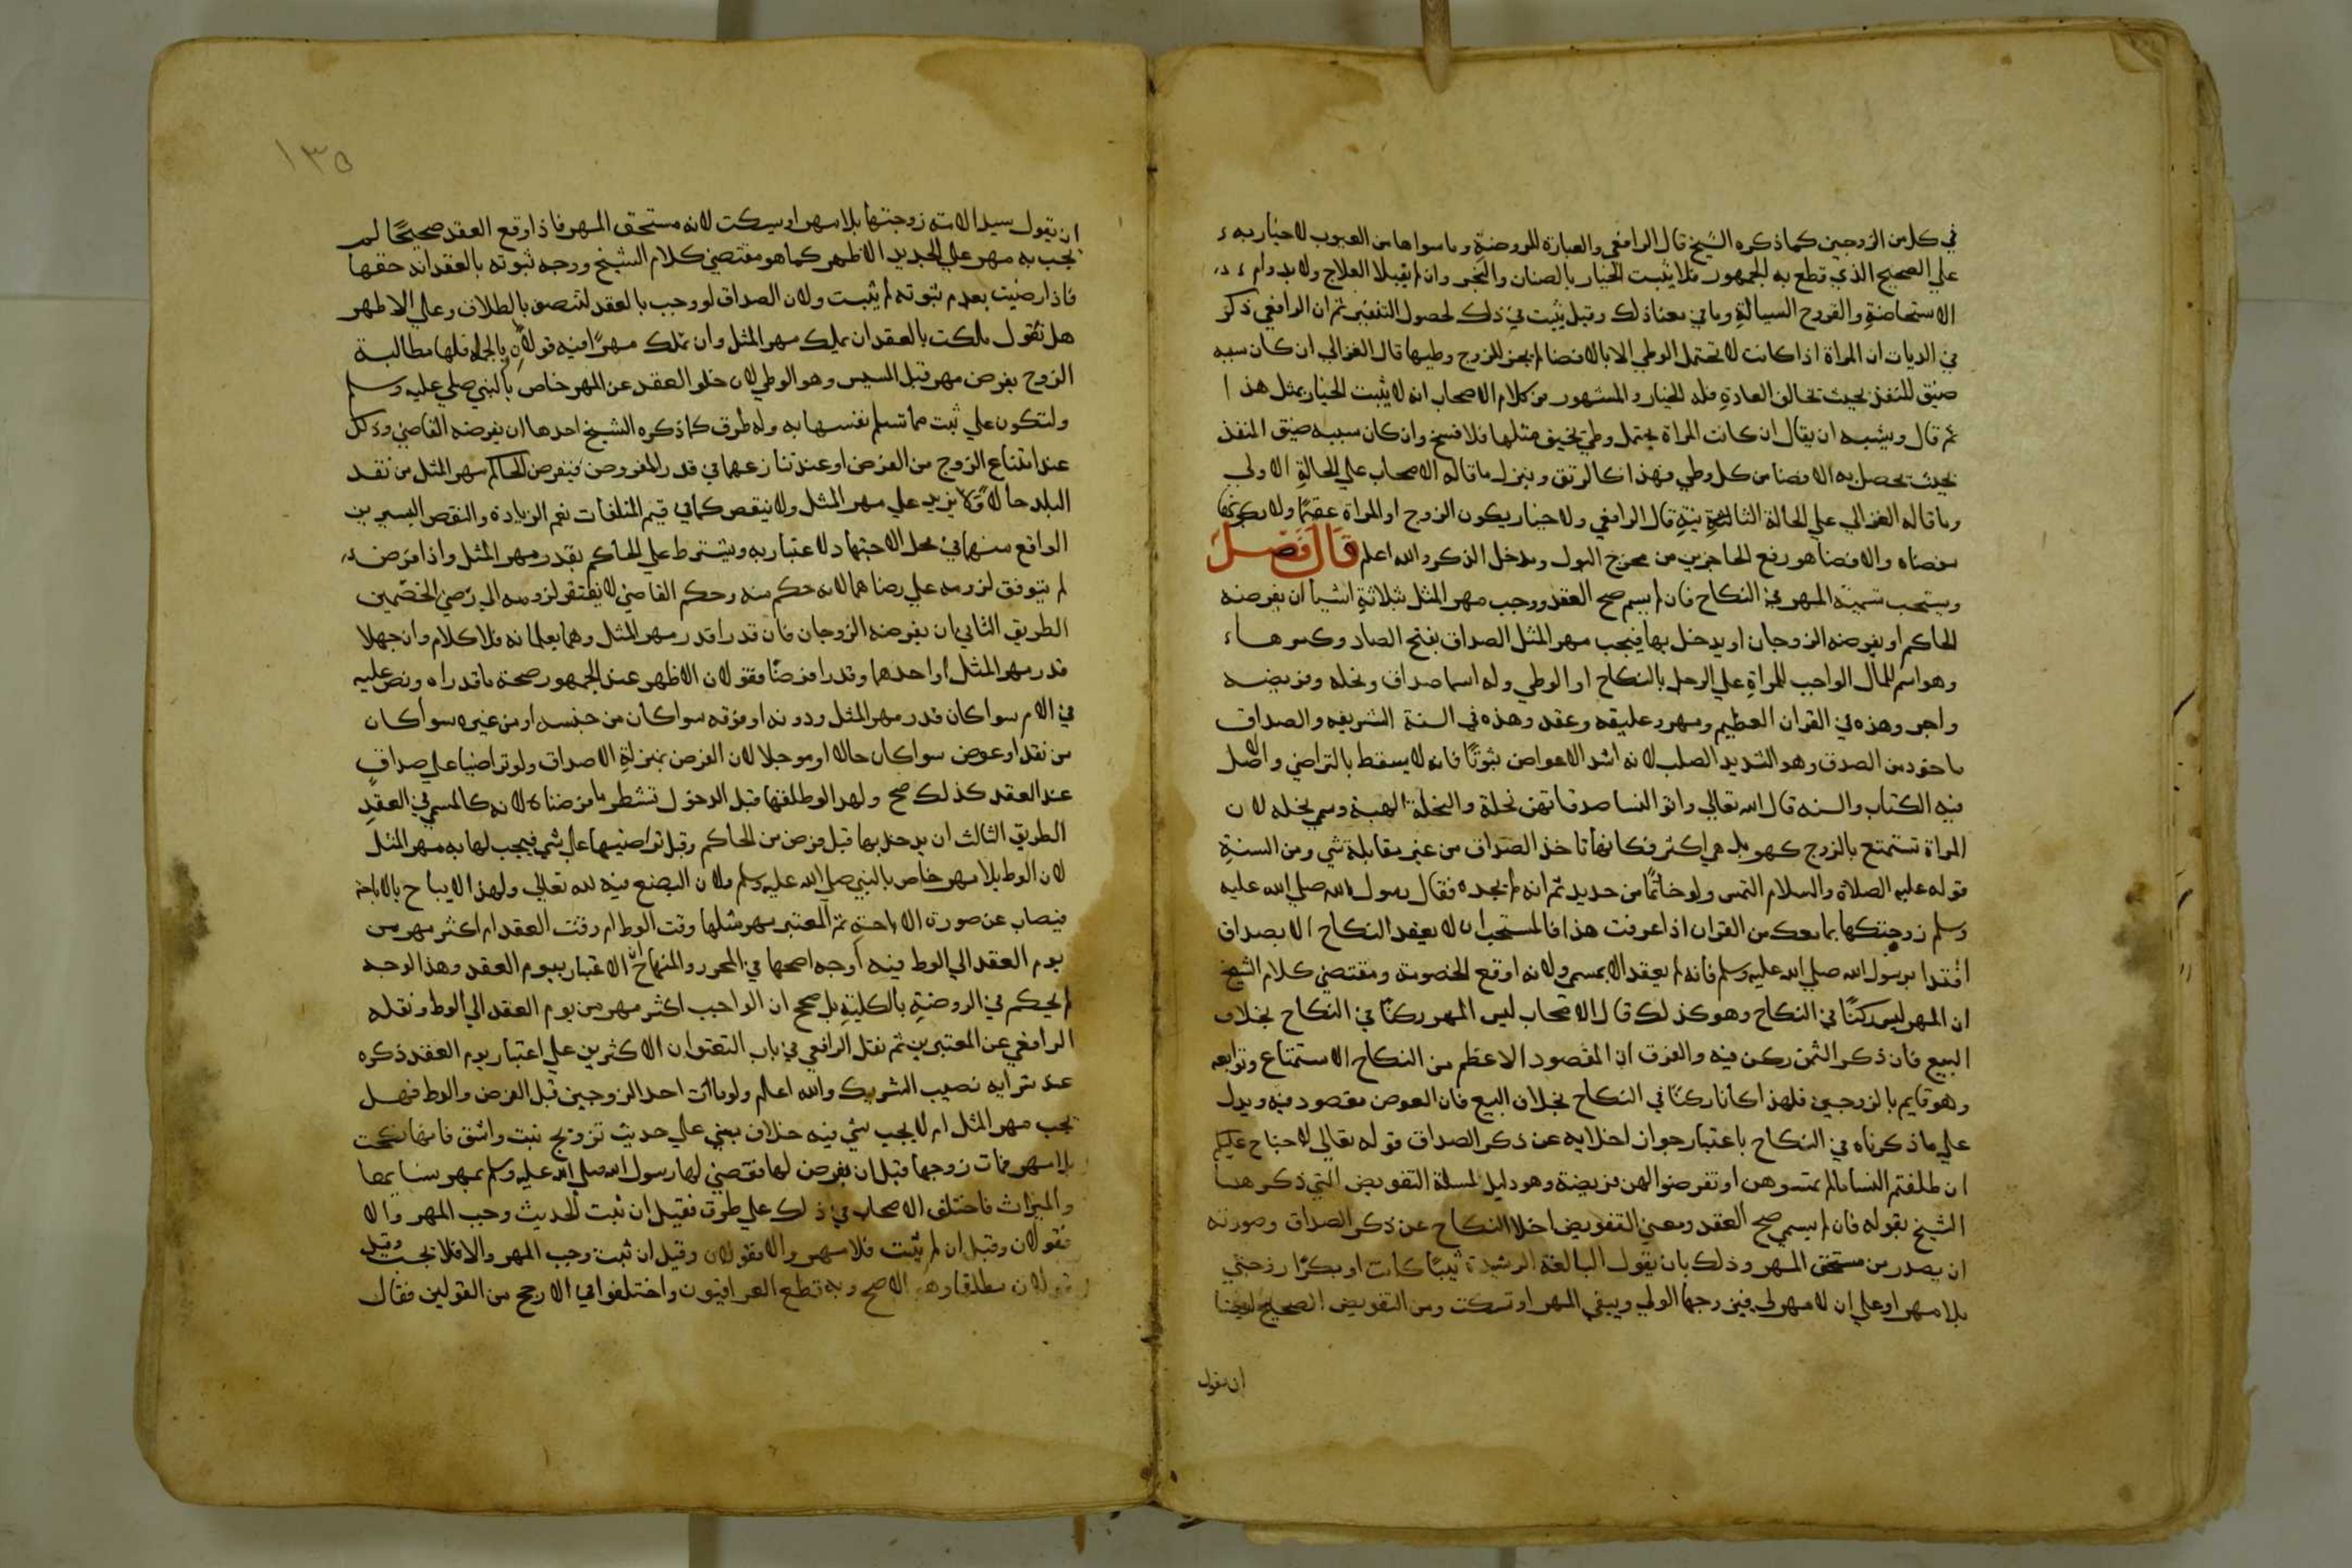 في كل من الزوجين كما ذكره الشيخ قال الرافعي والعبارة للروضة وما سواها من العيوب لا خيار به
علي الصحيح الذي قطع به الجمهور فلا يثبت الخيار بالصنان والبخر وان لم يقبلا العلاج ولا بدوام
الاستحاضة والقروح السيالة وما في معنا ذلك وقيل يثبت في ذلك لحصول التنفير ثم ان الرافعي ذكر
في الديات ان المراة اذا كانت لا تحتمل الوطي الا بالافضا لم يجز للزوج وطيها قال الغزالي ان كان سببه
ضيق المنفذ بحيث تخالف العادة فله الخيار والمشهور من كلام الاصحاب انه لا يثبت الخيار بمثل هذا
ثم قال ويشبه ان يقال ان كانت المراة تحتمل وطي نحيف مثلها فلا فسخ وان كان سببه ضيق المنفذ
بحيث يحصل به الافضا من كل وطي فهذا كالرتق وينزل ما قاله الاصحاب علي الحالة الاولي
وما قاله الغزالي علي الحالة الثانية قال الرافعي ولا خيار بكون الزوج او المراة عقيما ولا بكونها
مفضاه والافضا هو رفع الحاجز بين مخرج البول ومدخل الذكر والله اعلم قال فصل
ويستحب تسمية المهر في النكاح فان لم يسم صح العقد ووجب مهر المثل بثلاثة اشيا ان يفرضه
الحاكم او يفرضه الزوجان او يدخل بها فيجب مهر المثل الصداق بفتح الصاد وكسرها
وهو اسم للمال الواجب للمراة علي الرجل بالنكاح او الوطي وله اسما صداق ونحله وفريضه
واجر وهذه في القران العظيم ومهر وعليقه وعقد وهذه في السنة الشريفه والصداق
ماخود من الصدق وهو الشديد الصلب لانه اشد الاعواض ثبوتًا فانه لا يسقط بالتراضي والاصل
فيه الكتاب والسنه قال الله تعالي واتو النسا صدقاتهن نحلة والنحلة الهبة وسمي نحله لان
المراة تستمتع بالزوج كهو بل هي اكثر فكانها تاخذ الصداق من غير مقابلة شي ومن السنة
قوله عليه الصلاة والسلام التمس ولو خاتمًا من حديد ثم انه لم يجده فقال رسول الله صلي الله عليه
وسلم زوجتكها بما معك من القران اذا عرفت هذا فالمستحب ان لا يعقد النكاح الا بصداق
اقتدا برسول الله صلي الله عليه وسلم فانه لم يعقد الا بمسمي ولانه اوقع للخصومة ومقتضي كلام الشيخ
ان المهر ليس ركنًا في النكاح وهو كذلك قال الاصحاب ليس المهر ركنًا في النكاح بخلاف
البيع فان ذكر الثمن ركن فيه والفرق ان المقصود الاعظم من النكاح الاستمتاع وتوابعه
وهو قايم بالزوجين فلهذا كانا ركنًا في النكاح بخلاف البيع فان العوض مقصود فيه ويدل
علي ما ذكرناه في النكاح باعتبار جواز اخلايه عن ذكر الصداق قوله تعالي لا جناح عليكم
ان طلقتم النسا ما لم تمسوهن او تفرضوا لهن فريضة وهو دليل لمسلة التفويض التي ذكرها
الشيخ بقوله فان لم يسمي صح العقد ومعني التفويض اخلا النكاح عن ذكر الصداق وصورته
ان يصدر من مستحق المهر وذلك بان يقول البالغة الرشيدة ثيبًا كانت او بكرًا زوجني
بلا مهر او علي ان لا مهر لي فيزوجها الولي وينفي المهر او تسكت ومن التفويض الصحيح ايضا
ان يقول
١٣٥
ان يقول سيد الامة زوجتها بلا مهر او يسكت لانه مستحق المهر فاذا وقع العقد صحيحًا لم
يجب به مهر علي الجديد الاظهر كما هو مقتضي كلام الشيخ ووجه ثبوته بالعقد انه حقها
فاذا رضيت بعدم ثبوته لم يثبت ولان الصداق لو وجب بالعقد لتنصف بالطلاق وعلي الاظهر
هل نقول ملكت بالعقد ان تملك مهر المثل وان تملك مهرًا فيه قولان وبالجملة فلها مطالبة
الزوج بفرض مهر قبل المسيس وهو الوطي لان خلو العقد عن المهر خاص بالنبي صلي عليه وسلم
ولتكون علي ثبت مما تسلم نفسها به وله طرق كما ذكره الشيخ احدها ان يفرضه القاضي وذلك
عند امتناع الزوج من الفرض او عند تنازعهما في قدر المفروض فيفرض الحاكم مهر المثل من نقد
البلد حالا ولا يزيد علي مهر المثل ولا ينقص كما في قيم المتلفات نعم الزيادة والنقص اليسيرين
الواقع منهما في محل الاجتهاد لا عتبار به ويشترط علي الحاكم بقدر مهر المثل واذا فرضه
لم يتوقف لزومه علي رضاهما لانه حكم منه وحكم القاضي لا يفتقر لزومه الي رضي الخصمين
الطريق الثاني ان يفرضه الزوجان فان قدرا قدر مهر المثل وهما يعلمانه فلا كلام وان جهلا
قدر مهر المثل او احدهما وقدرا فرضًا فقولان الاظهر عند الجمهور صحة ما قدراه ونص عليه
في الام سوا كان قدر مهر المثل ودونه او فوقه سوا كان من جنسه او من غيره سوا كان
من نقد او عوض سوا كان حالا او موجلا لان الفرض بمنزلة الاصداق ولو تراضيا علي صداق
عند العقد كذلك صح ولهذا لو طلقها قبل الدخول تشطر ما فرضناه لانه كالمسمي في العقد
الطريق الثالث ان يدخل بها قبل فرض من الحاكم وقبل تراضيهما علي شي فيجب لها به مهر المثل
لان الوط بلا مهر خاص بالنبي صلي الله عليه وسلم ولان البضع فيه لله تعالي ولهذا لا يباح بالاباحة
فيصان عن صورة الاباحة ثم المعتبر مهر مثلها وقت الوط ام وقت العقد ام اكثر مهر من
يوم العقد الي الوط فيه اوجه اصحها في المحرر والمنهاج ان الاعتبار بيوم العقد وهذا الوجه
لم يحكم في الروضة بالكلية بل صحح ان الواجب اكثر مهر من يوم العقد الي الوط ونقله
الرافعي عن المعتبرين ثم نقل الرافعي في باب ان الاكثرين علي اعتبار يوم العقد ذكره
عند نصيب الشريك والله اعلم ولو مات احد الزوجين قبل الفرض والوط فهل
يجب مهر المثل ام لا يجب شي فيه خلاف يبني علي حديث تزويج بنت واشق فانها نكحت
بلا مهر فمات زوجها قبل ان يفرض لها فقضي لها رسول الله صلي الله عليه وسلم بمهر نسايها
والميراث فاختلف الاصحاب في ذلك علي طرق فقيل ان ثبت الحديث وجب المهر والا
فقولان وقيل ان لم يثبت فلا مهر والا فقولان وقيل ان ثبت وجب المهر والا فلا يجب وقيل
قولان مطلقا وهو الاصح وبه قطع العراقيون واختلفوا في الارجح من القولين فقال